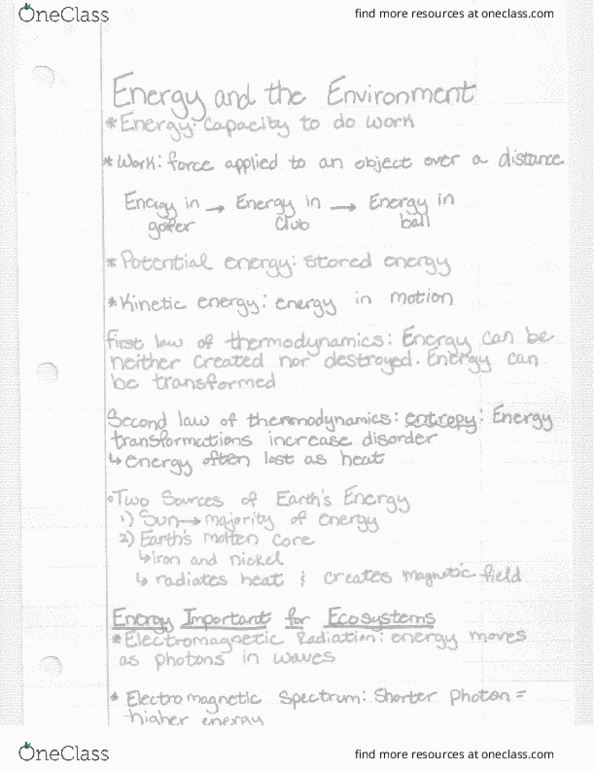 OneClass
find more resources at oneclass.com
Energy and the Environment
*Energy: capacity to do work
*Work: force applied to an object over a distance
Energy in → Energy in → Energy in
golfer club ball
*Potential energy: stored energy
*Kinetic energy: energy in motion
First law of thermodynamics: Energy can be
neither created nor destroyed. Energy can
be transformed
Second law of thermodynamics: entropy: Energy
transformations increase disorder
↳ energy often lost as heat
°Two Sources of Earth's Energy
1) Sun → majority of energy
2) Earth's molten core
↳ iron and nickel
↳ radiates heat & creates magnetic field
Energy Important for Ecosystems
*Electromagnetic Radiation: energy moves
as photons in waves
*Electromagnetic Spectrum: Shorter photon =
higher energy
OneClass
find more resources at oneclass.com